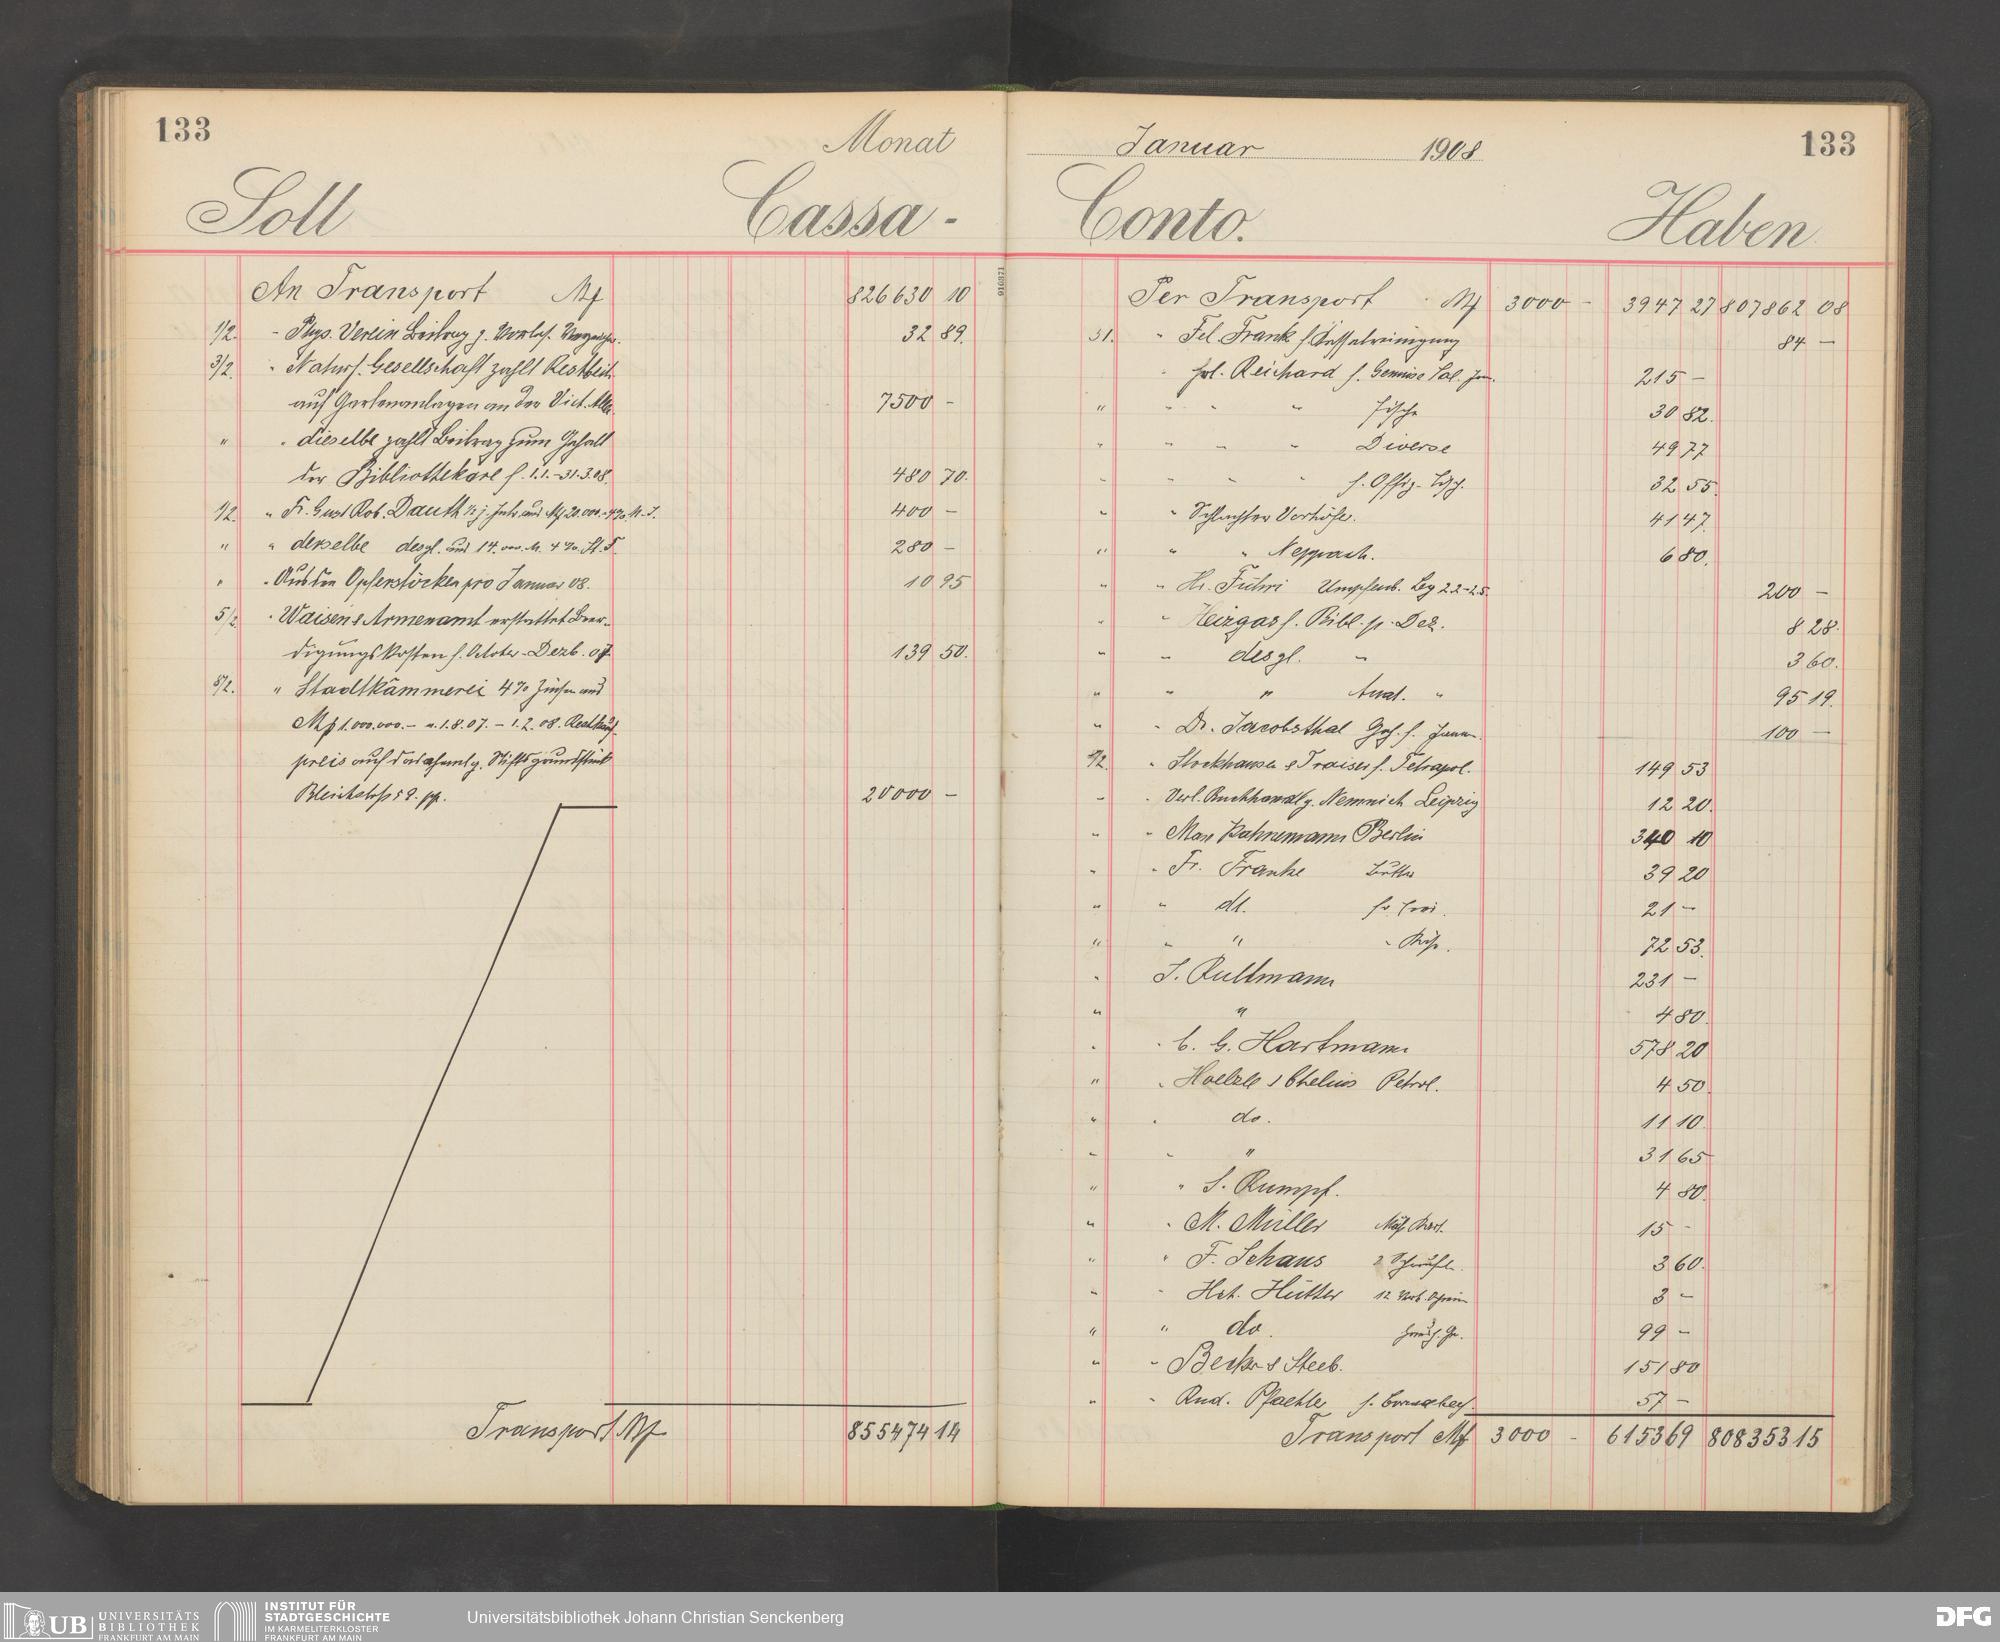 133
Monat
Soll
Cassa-
An Transport Mk 826630 10
1/2. - Phys. Verein Beitrag z. Vorles. Verzeichn. 32 89.
3/2. " Naturf. Gesellschaft zahlt Restbeitr.
auf Gartenanlagen an der Vict. Allee 7500 -
" " dieselbe zahlt Beitrag zum Gehalt
der Bibliothekare f. 1.1.-31.3.08. 480 70.
1/2. " Fr. Gust Rob. Dauth ½ j. Zins aus Mk 20.000.- 4% 400 -
" " derselbe desgl. aus 14.000 M. 4% 280 -
" " Aus den Opferstöcken pro Januar 08. 10 95
5/2. " Waisen & Armenamt erstattet Beer-
digungskosten f. October - Dezb. 07. 139 50.
8/2. " Stadtkämmerei 4% Zinsen aus
Mk 1.000.000.- v. 1.8.07. - 1.2.08. Restkauf-
preis auf das ehemalg. Stiftsgrundstück
Bleichstrasse 20000 -
Transport Mk 855474 14
Januar 1908
133
Conto.
Haben
916871
Per Transport Mk 3000 - 3947 27 807862 08
31. " Fel. Frank f. 84 -
" Frl. Reichard f. Gemüse Sal. Jan. 215 -
" " " " Fische 30 82.
" " " " Diverse 49 77
" " " " f. Offiz. Tisch. 32 55.
" " Schlachter Vorhöfer. 41 47.
" " " Neppach. 6 80.
" " Hr. Führi Umpfenb. Beg 22-25. 200 -
" " Heizgas f. Bibl. p. Dez. 8 28.
" " desgl. " 3 60.
" " " Anat. " 95 19.
" " Dr. Jacobsthal Geh. f. Januar. 100 -
4/2. " Stockhausen & Traiser f. Tetrapol. 149 53
" " Verl. Buchhandlg. Nemnich Leipzig 12 20.
" " Max Kahnemann Berlin 340 10
" " Fr. Franke Butter 39 20
" " dt. 21 -
" " " 72 53.
" J. Rullmann 231 -
" " 4 80.
" " C. G. Hartmann 578 20
" " Hoelzle & Chelius Petrol. 4 50.
" " do. 11 10.
" " " 31 65
" " S. Rumpf. 4 80.
" " M. Müller 15 -
" " F. Schaus 3 60.
" " Hch. Hütter 3 -
" " do. 99 -
" " Becker & Steeb. 151 80
" " Rud. Pfaehler 57 -
Transport Mk 3000 - 6153 69 808353 15
UB UNIVERSITÄTS
BIBLIOTHEK
FRANKFURT AM MAIN
INSTITUT FÜR
STADTGESCHICHTE
IM KARMELITERKLOSTER
FRANKFURT AM MAIN
Universitätsbibliothek Johann Christian Senckenberg
DFG